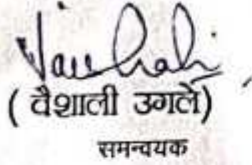 Vaishali
( वैशाली उगले)
समन्वयक